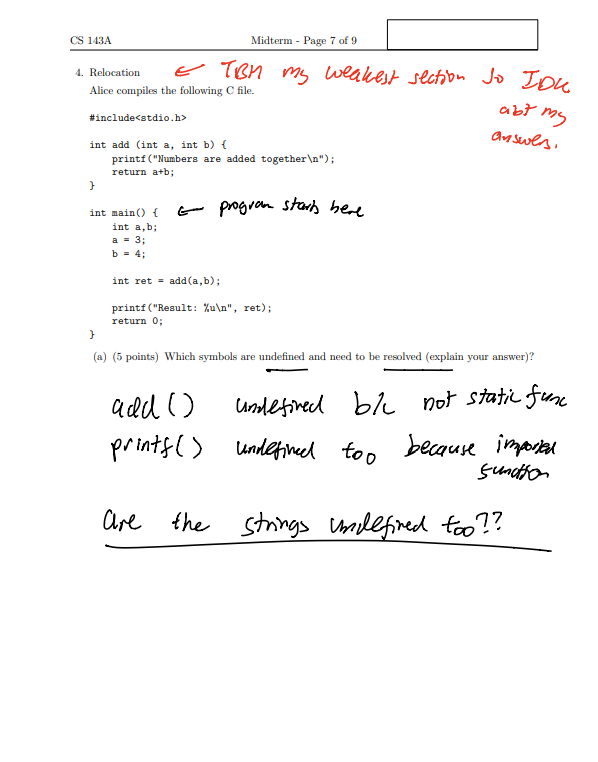 CS 143A Midterm - Page 7 of 9
4. Relocation ← TBH my weakest section so IDK
Alice compiles the following C file. abt my
#include<stdio.h> answers.
int add (int a, int b) {
printf("Numbers are added together\n");
return a+b;
}
int main() { ← program starts here
int a,b;
a = 3;
b = 4;
int ret = add(a,b);
printf("Result: %u\n", ret);
return 0;
}
(a) (5 points) Which symbols are undefined and need to be resolved (explain your answer)?
add() undefined b/c not static func
printf() undefined too because imported
function
are the strings undefined too??